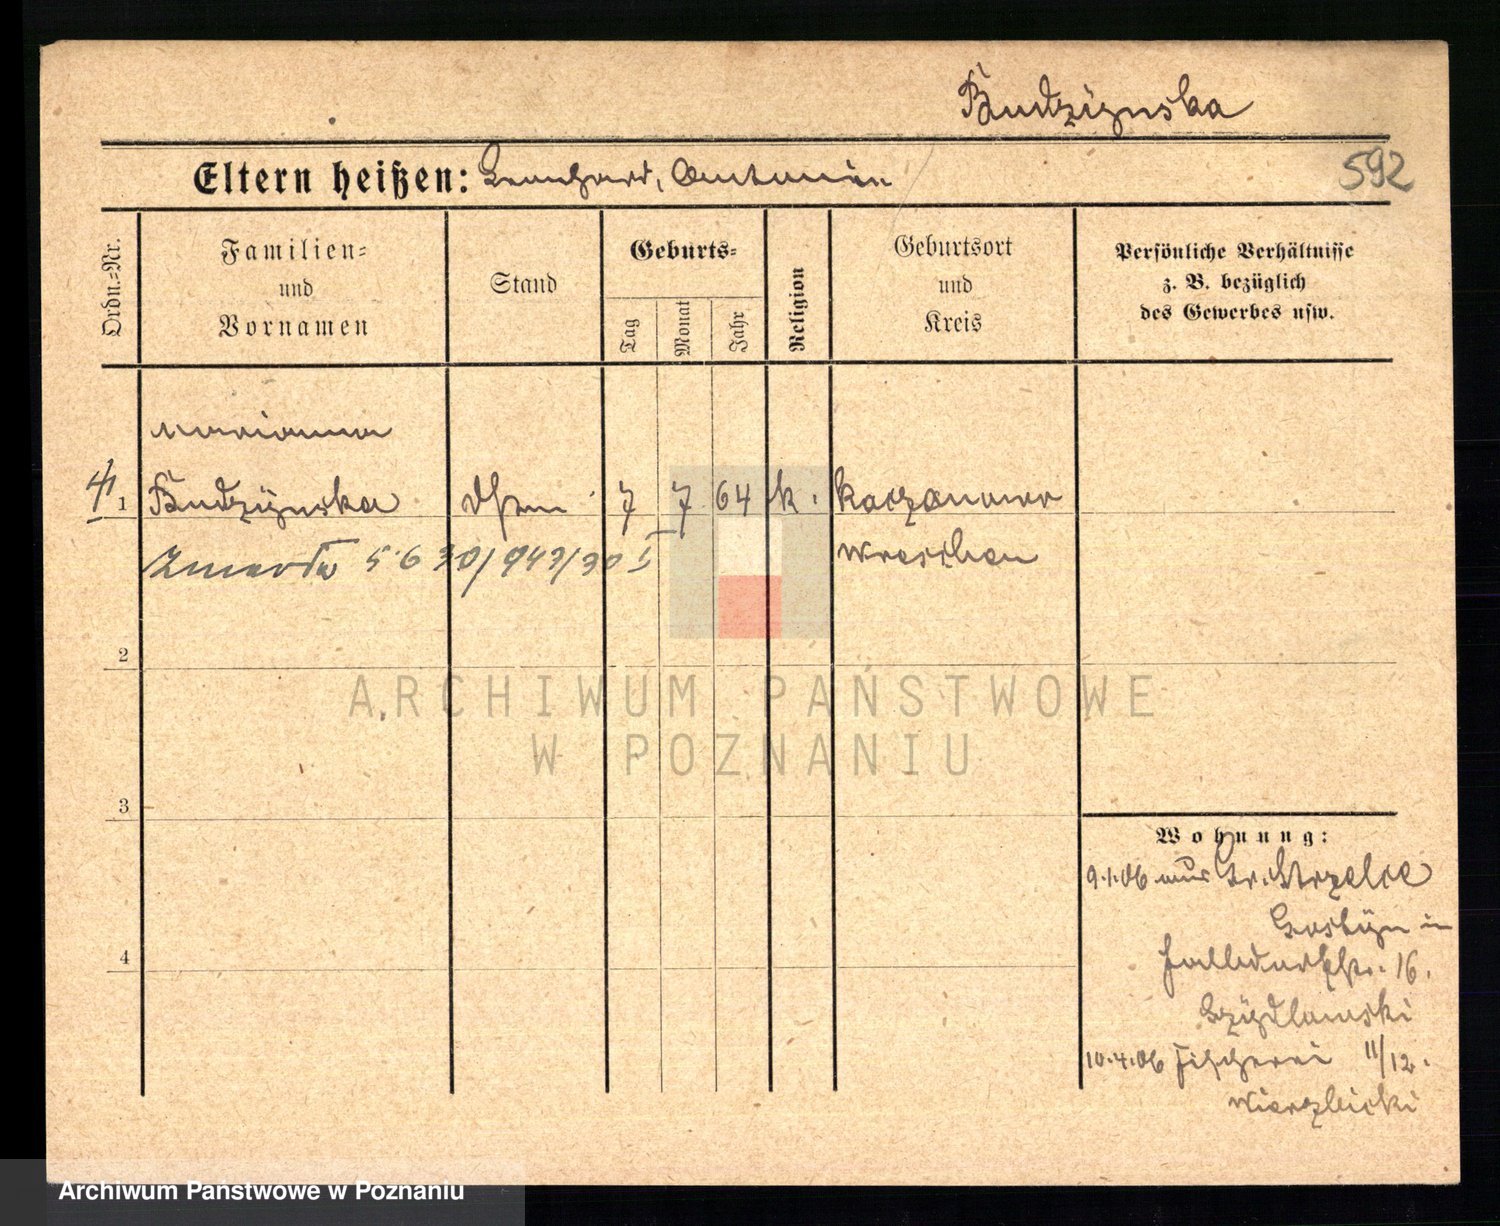 Budzyńska
Eltern heißen: Leonhard, Antonie
592
Ordn.-Nr.
Familien-
und
Vornamen
Stand
Geburts-
Tag
Monat
Jahr
Religion
Geburtsort
und
Kreis
Persönliche Verhältnisse
z. B. bezüglich
des Gewerbes usw.
Marianna
1 Budzyńska 7 7 64 k. Kaczanowo
Zmarła 5.6 30/943/30 I
Wreschen
2
ARCHIWUM PAŃSTWOWE
W POZNANIU
3
Wohnung:
9.1.06 aus Gr. Strzelce
Gostyn in
Halbdorfstr. 16.
Szydlowski
4
10.4.06 Fischerei 11/12.
Wierzbicki
Archiwum Państwowe w Poznaniu